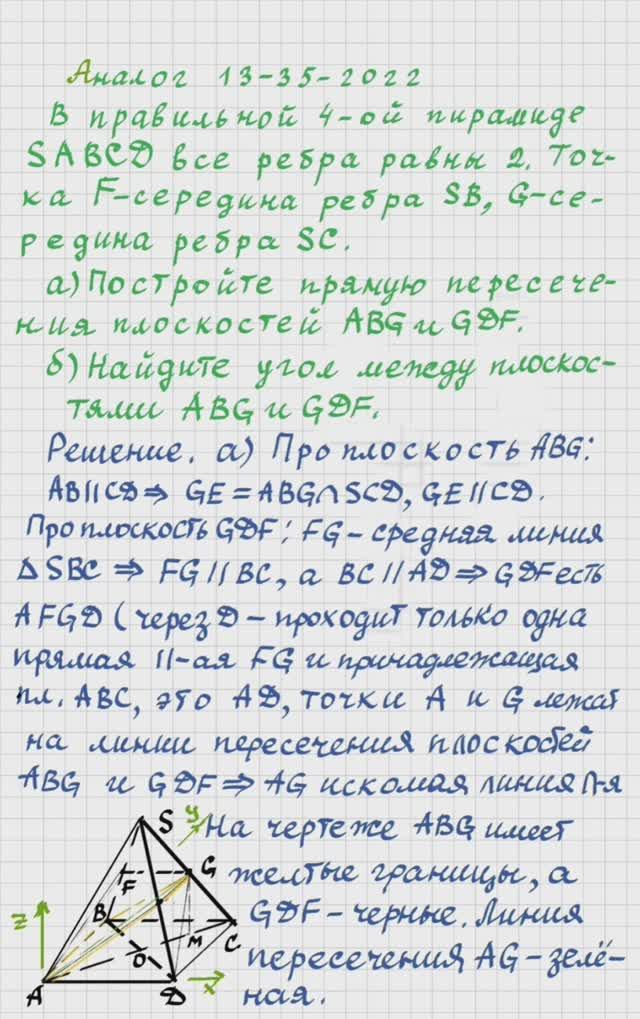 Аналог 13-35-2022
В правильной 4-ой пирамиде
SABCD все ребра равны 2. Точ-
ка F-середина ребра SB, G-се-
редина ребра SC.
а) Постройте прямую пересече-
ния плоскостей ABG и GDF.
б) Найдите угол между плоскос-
тями ABG и GDF.
Решение. а) Про плоскость ABG:
AB∥CD ⇒ GE = ABG∩SCD, GE∥CD.
Про плоскость GDF: FG-средняя линия
Δ SBC ⇒ FG∥BC, а BC∥AD ⇒ GDF есть
AFGD (через D - проходит только одна
прямая ∥-ая FG и принадлежащая
пл. ABC, это AD, точки A и G лежат
на линии пересечения плоскостей
ABG и GDF ⇒ AG искомая линия п-я
На чертеже ABG имеет
желтые границы, а
GDF - черные. Линия
пересечения AG - зелё-
ная.
S
y
G
F
z
B
M
C
O
A
D
x